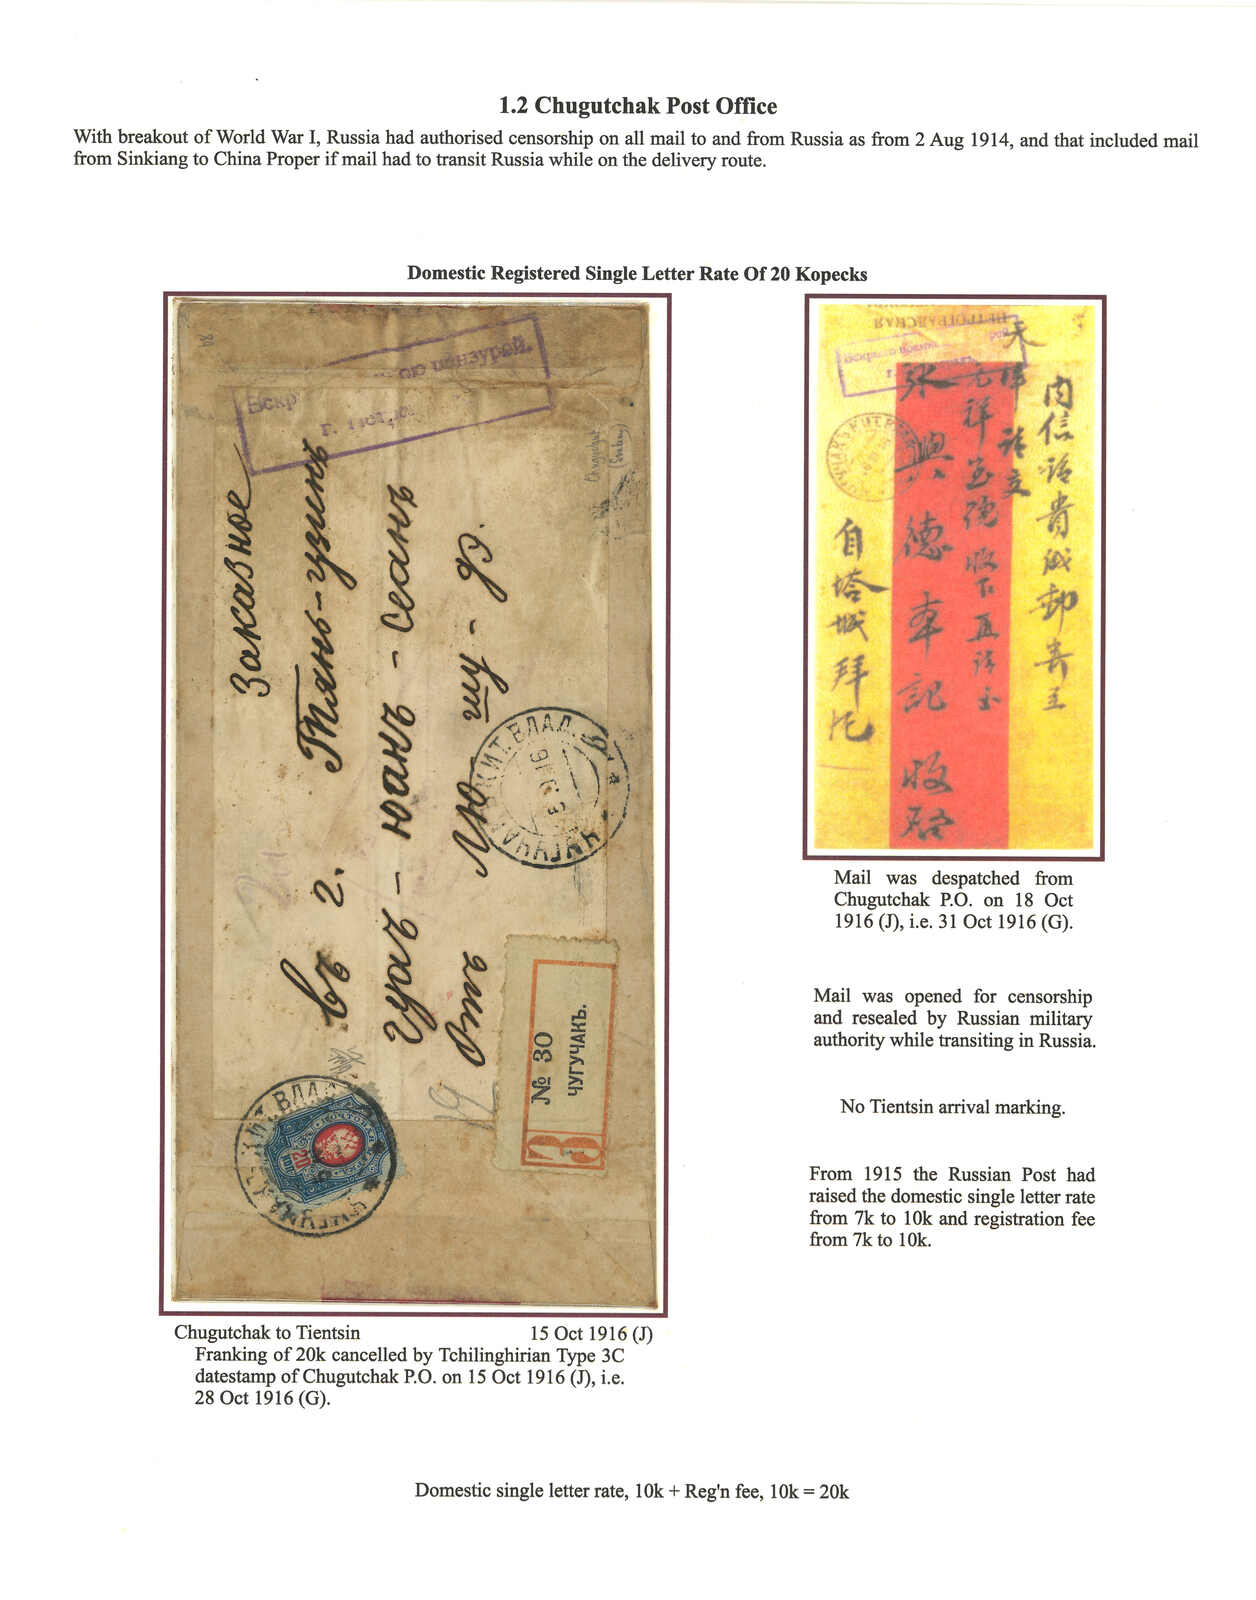 1.2 Chugutchak Post Office
With breakout of World War I, Russia had authorised censorship on all mail to and from Russia as from 2 Aug 1914, and that included mail
from Sinkiang to China Proper if mail had to transit Russia while on the delivery route.
Domestic Registered Single Letter Rate Of 20 Kopecks
Заказное
въ г. Тянь-узинъ
гуаъ-юанъ-сеанъ
отъ Лю шу-дэ.
№ 30
ЧУГУЧАКЪ.
З
КИТ. ВЛАД.
КИТ. ВЛАД.
ПОЧТОВАЯ
20
КОП
ПЕТРОГРАДСКАЯ
内信請貴城郵寄至
天
祥請交
德
記
收
自塔城拜托
Chugutchak to Tientsin 15 Oct 1916 (J)
Franking of 20k cancelled by Tchilinghirian Type 3C
datestamp of Chugutchak P.O. on 15 Oct 1916 (J), i.e.
28 Oct 1916 (G).
Mail was despatched from
Chugutchak P.O. on 18 Oct
1916 (J), i.e. 31 Oct 1916 (G).
Mail was opened for censorship
and resealed by Russian military
authority while transiting in Russia.
No Tientsin arrival marking.
From 1915 the Russian Post had
raised the domestic single letter rate
from 7k to 10k and registration fee
from 7k to 10k.
Domestic single letter rate, 10k + Reg'n fee, 10k = 20k